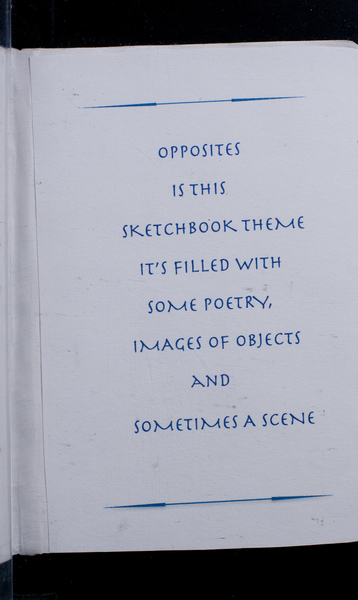 OPPOSITES
IS THIS
SKETCHBOOK THEME
IT'S FILLED WITH
SOME POETRY,
IMAGES OF OBJECTS
AND
SOMETIMES A SCENE